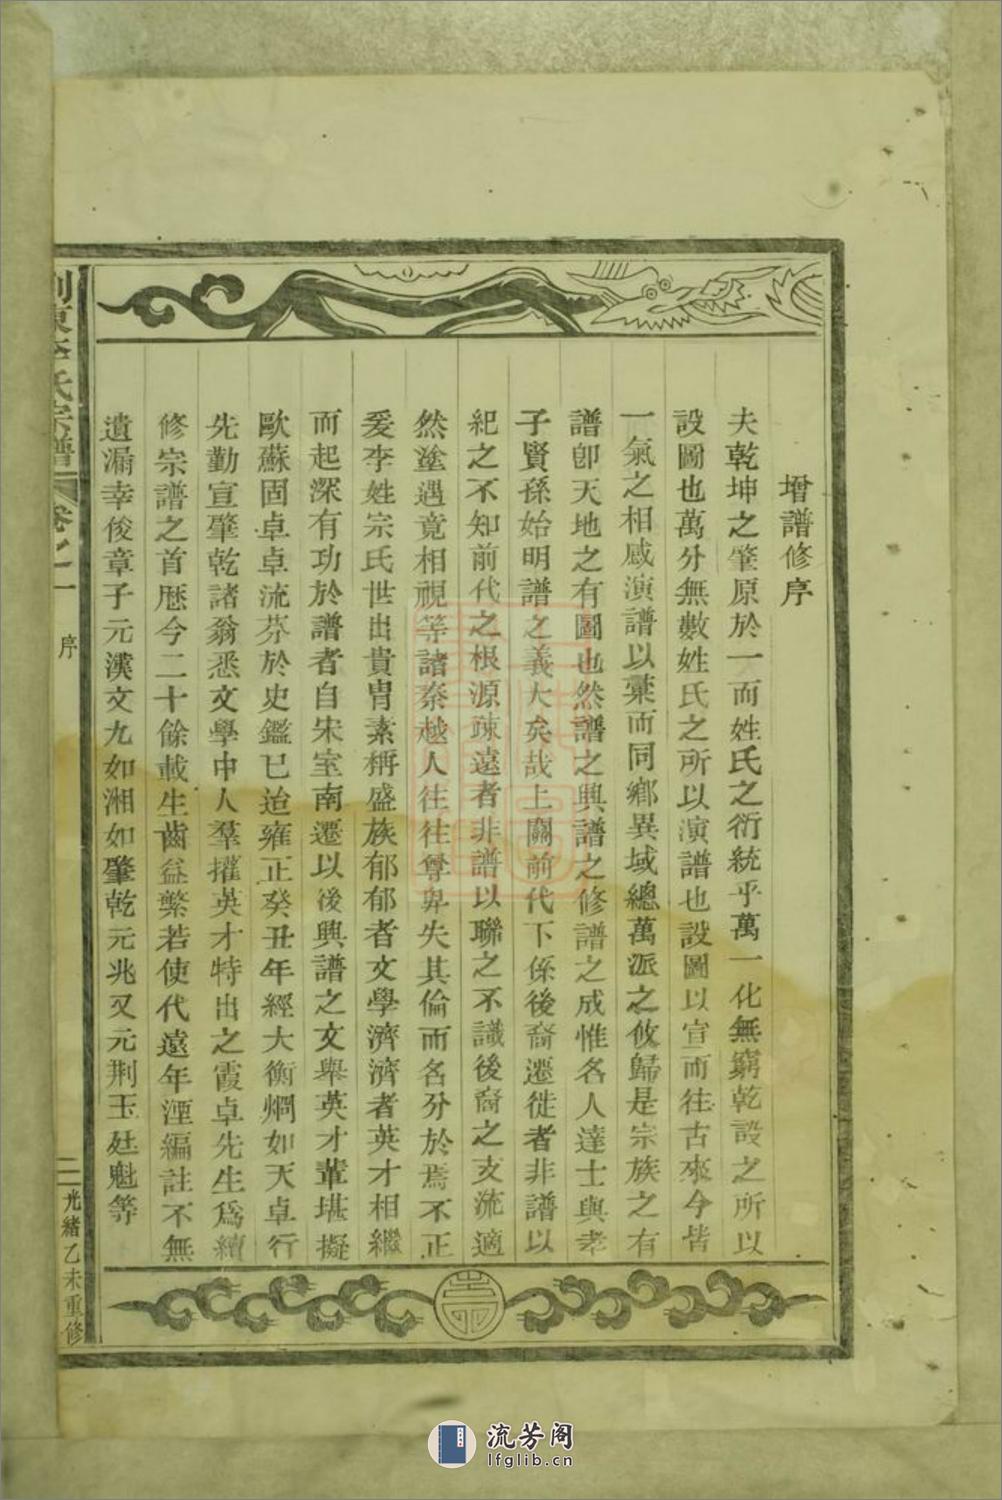 增譜修序
夫乾坤之肇原於一而姓氏之衍統乎萬一化無窮乾設之所以
設圖也萬分無數姓氏之所以演譜也設圖以宣而往古來今皆
一氣之相感演譜以葉而同鄉異域總萬派之攸歸是宗族之有
譜卽天地之有圖也然譜之興譜之修譜之成惟各人達士與孝
子賢孫始明譜之義大矣哉上關前代下係後裔遷徙者非譜以
紀之不知前代之根源疎遠者非譜以聯之不識後裔之支流適
然塗遇竟相視等諸秦越人往往尊卑失其倫而名分於焉不正
爰李姓宗氏世出貴胄素稱盛族郁郁者文學濟濟者英才相繼
而起深有功於譜者自宋室南遷以後興譜之文舉英才輩堪擬
歐蘇固卓卓流芬於史鑑已迨雍正癸丑年經大衡烱如天卓行
先勤宣肇乾諸翁悉文學中人羣擢英才特出之霞卓先生爲續
修宗譜之首歷今二十餘載生齒益繁若使代遠年湮編註不無
遺漏幸俊章子元漢文九如湘如肇乾元兆又元荆玉廷魁等
東李氏宗譜 卷之一 序 二 光緒乙未重修
流芳阁
lfglib.cn